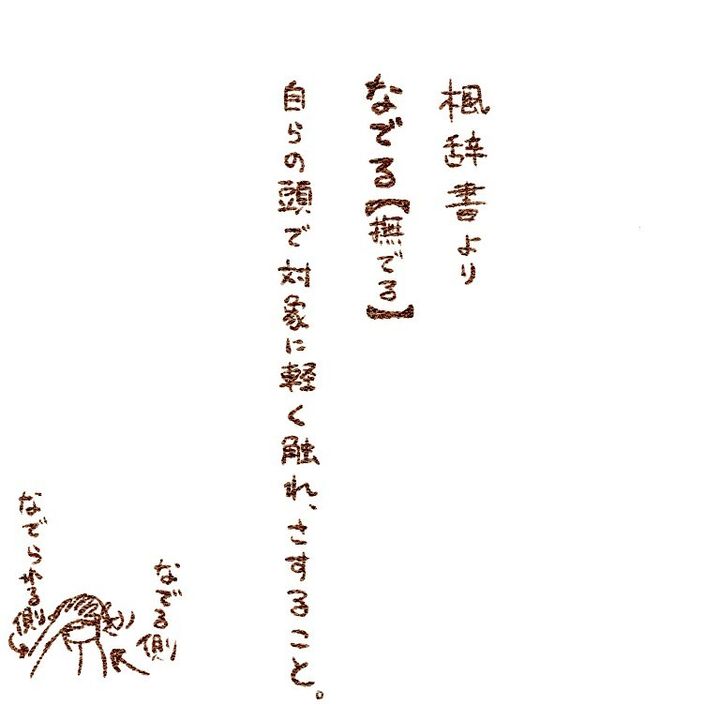 楓辞書より
なでる【撫でる】
自らの頭で対象に軽く触れ、さすること。
なでる側
なでられる側